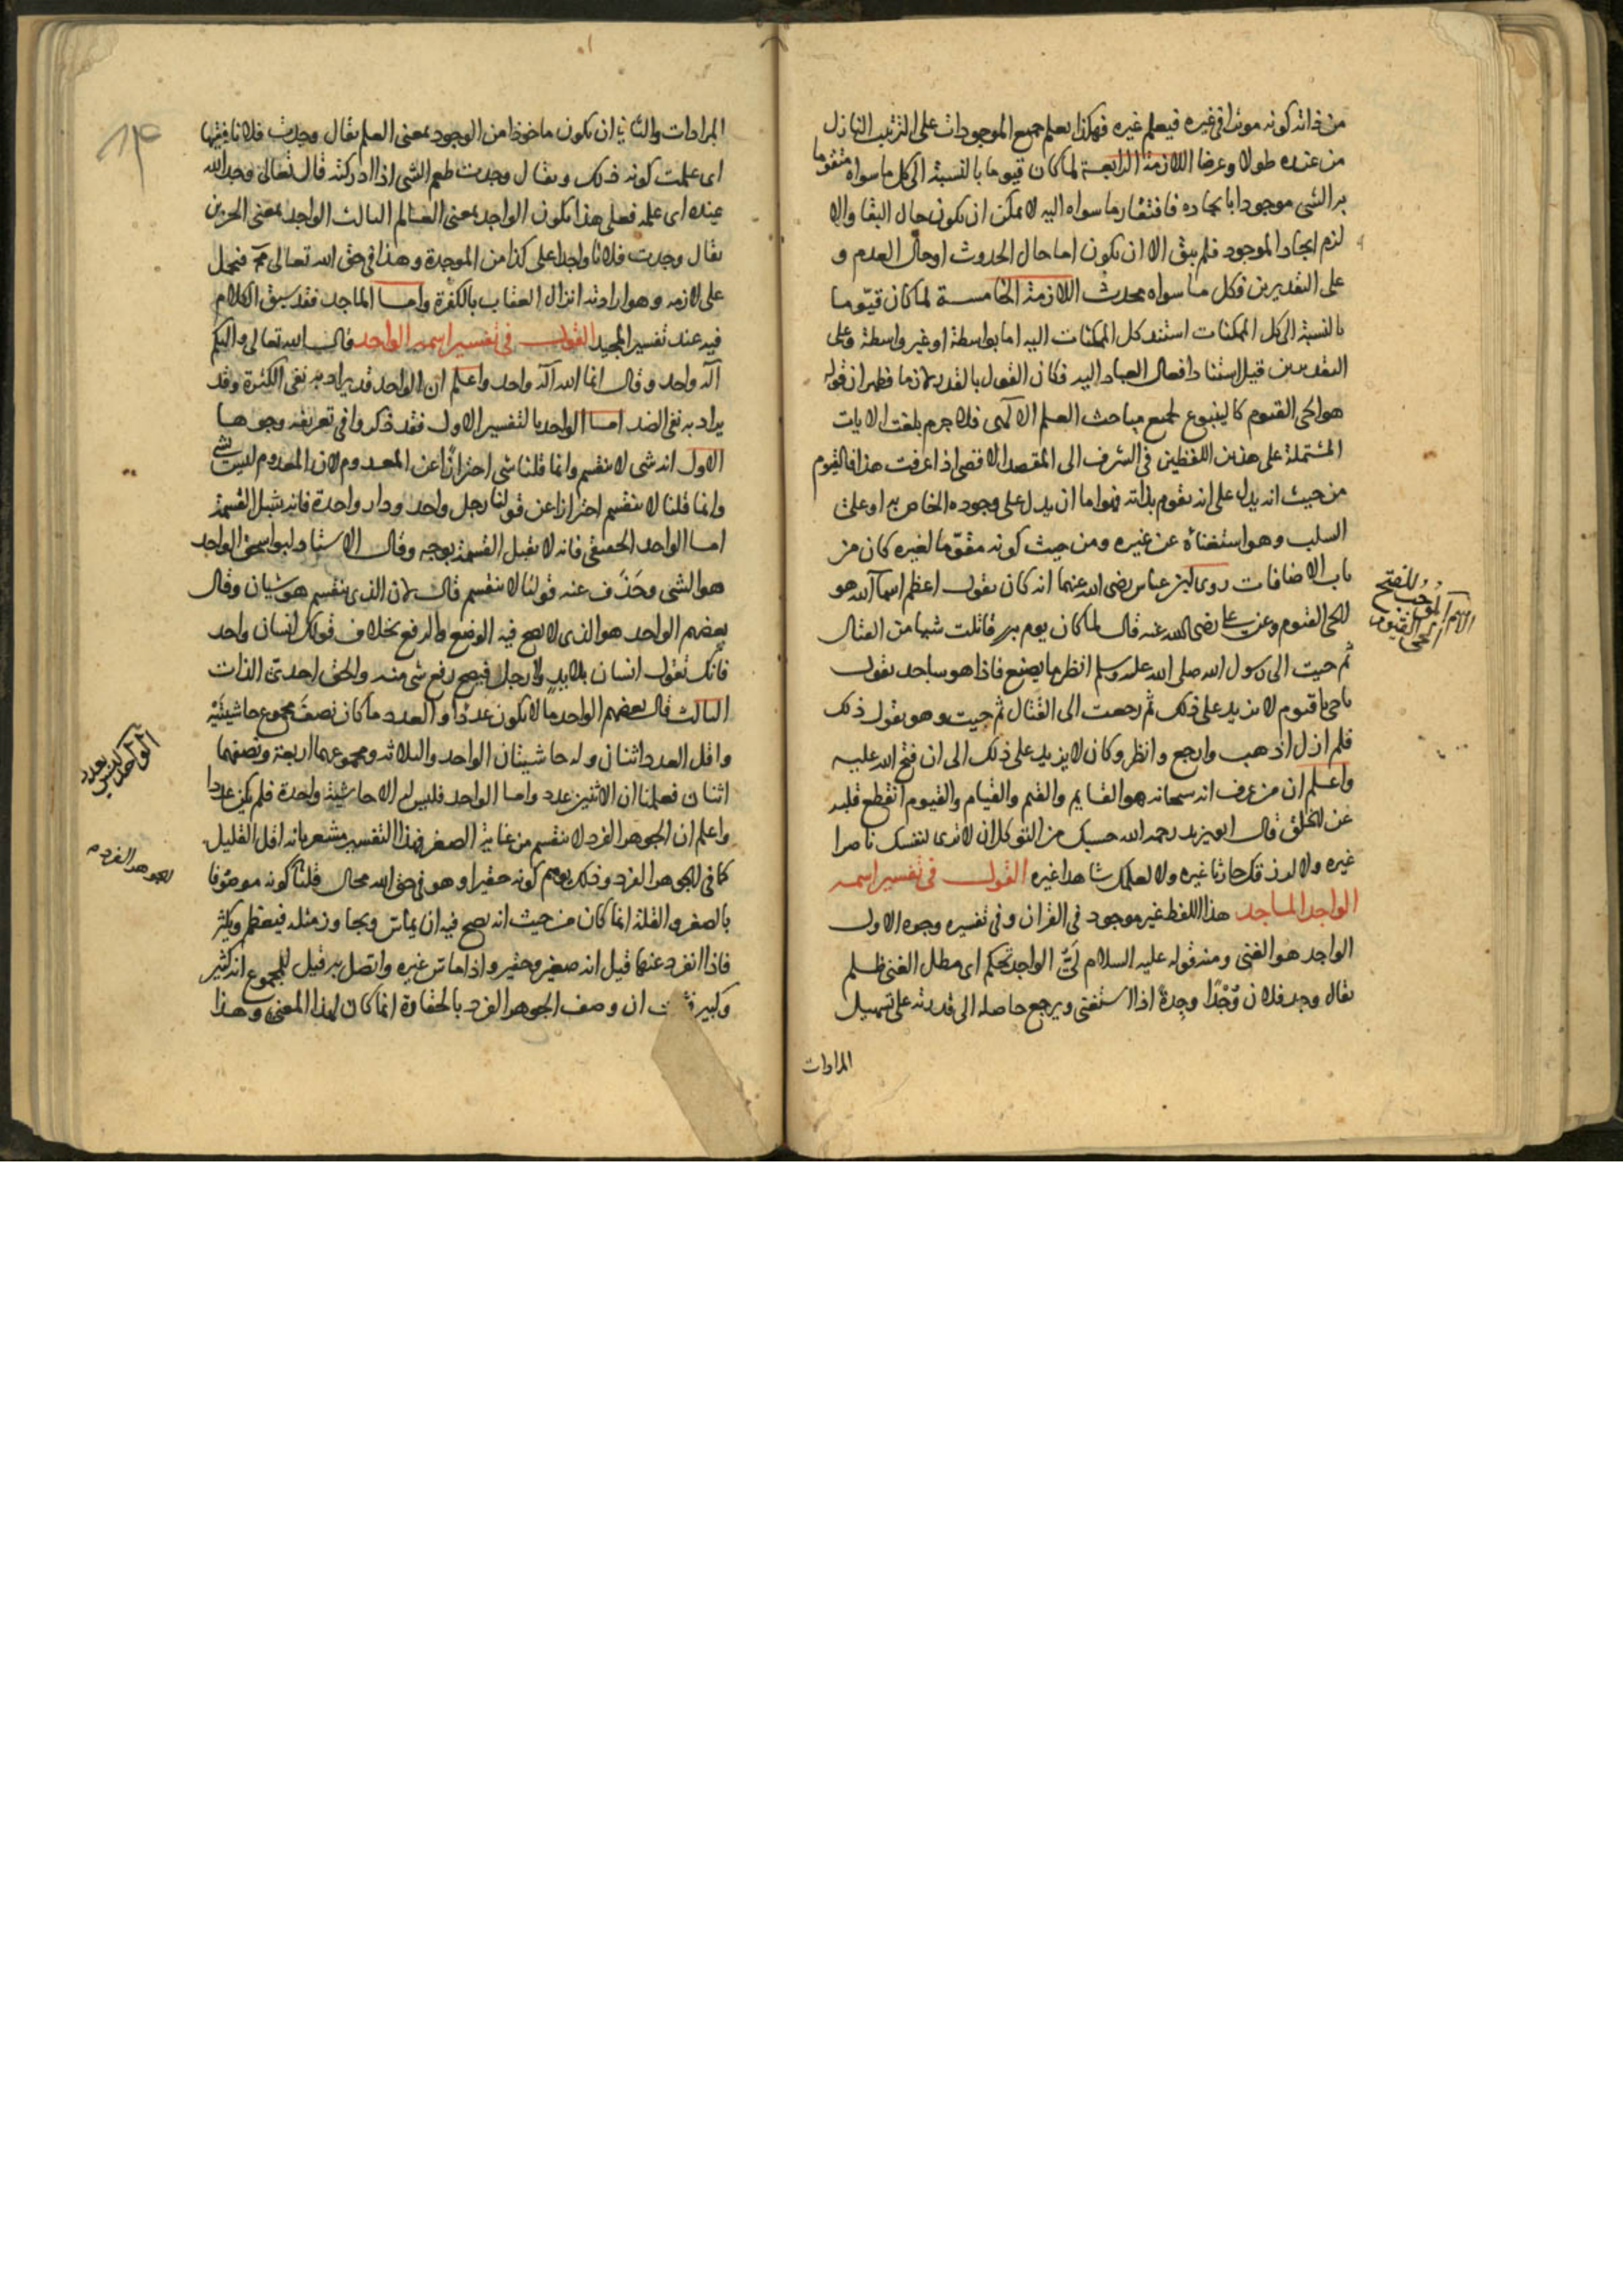 من ذاته كونه موثرا فى غيره فيعلم غيره فهكذا يعلم جميع الموجودات على الترتيب النازل
من عنده طولا وعرضا اللازمة الرابعة لما كان قيوما بالنسبة الى كل ما سواه متقوما
به الشى موجودا بايجاده فافتقار ما سواه اليه لا يمكن ان يكون حال البقا والا
لزم ايجاد الموجود فلم يبق الا ان يكون اما حال الحدوث او حال العدم و
على التقديرين فكل ما سواه محدث اللازمة الخامسة لما كان قيّوما
بالنسبة الى كل الممكنات استند كل الممكنات اليه اما بواسطة او غير واسطة وعلى
التقديرين قيل استناد افعال العباد اليه فكان القول بالقدر لازما فظهر ان قوله
هو الحى القيوم كالينبوع لجميع مباحث العلم الالهى فلا جرم بلغت الايات
المشتملة على هذين اللفظين فى الشرف الى المقصد الاقصى اذا عرفت هذا فالقيوم
من حيث انه يدل على انه تقوم بذاته فهو اما ان يدل على وجوده الخاص به او على
السلب وهو استغناه عن غيره ومن حيث كونه مقوّما لغيره كان من
باب الاضافات روى ابن عباس رضى الله عنهما انه كان يقول اعظم اسما الله هو
الحى القيوم وعن على رضى الله عنه قال لما كان يوم بدر قاتلت شيا من القتال
ثم جيت الى رسول الله صلى الله عليه وسلم انظر ما يصنع فاذا هو ساجد يقول
ياحى ياقيوم لا يزيد على ذلك ثم رجعت الى القتال ثم جيت وهو يقول ذلك
فلم ازل اذهب وارجع وانظر وكان لا يزيد على ذلك الى ان فتح الله عليه
واعلم ان من عرف انه سبحانه هو القايم والقيم والقيام والقيوم انقطع قلبه
عن الخلق قال ابو يزيد رحمه الله حسبك من التوكل ان لا ترى لنفسك ناصرا
غيره ولا لرزقك خازنا غيره ولا لعملك شاهدا غيره القول فى تفسير اسمه
الواجد الماجد هذا اللفظ غير موجود فى القران وفى تفسيره وجوه الاول
الواجد هو الغنى ومنه قوله عليه السلام لَىّ الواجد ظلم اى مطل الغنى ظلم
يقال وجد فلان وُجْدًا وجِدةً اذا استغنى ويرجع حاصله الى قدرته على تسهيل
المرادات
للفتح
الحى القيوم
المرادات والثانى ان يكون ماخوذا من الوجود بمعنى العلم يقال وجدت فلانا فقيها
اى علمت كونه كذلك ويقال وجدت طعم الشى اذا ادركته قال تعالى وجد الله
عنده اى علمه فعلى هذا يكون الواجد بمعنى العالم الثالث الواجد بمعنى الحزين
يقال وجدت فلانا واجدا على كذا من الموجدة وهذا فى حق الله تعالى مح فيحمل
على لازمه وهو ارادته انزال العقاب بالكفرة واما الماجد فقد سبق الكلام
فيه عند تفسير المجيد القول فى تفسير اسمه الواحد قال الله تعالى والهكم
اله واحد وقال انما الله اله واحد واعلم ان الواحد قد يراد به نفى الكثرة وقد
يراد به نفى الضد اما الواحد بالتفسير الاول فقد ذكروا فى تعريفه وجوها
الاول انه شى لا ينقسم وانما قلنا شى احترازًا عن المعدوم لان المعدوم ليس شى
وانما قلنا لا ينقسم احترازا عن قولنا رجل واحد ودار واحدة فانه يقبل القسمة
اما الواحد الحقيقى فانه لا يقبل القسمة بوجه وقال الاستاد ابو اسحق الواحد
هو الشى وحَذَف عنه قولنا لا ينقسم قال لان الذى ينقسم هو شيان وقال
بعضهم الواحد هو الذى لا يصح فيه الوضع والرفع بخلاف قولك انسان واحد
فانك تقول انسان بلا يد ولا رجل فيصح رفع شى منه والحق احدىّ الذات
الثالث قال بعضهم الواحد ما لا يكون عددًا والعدد ما كان نصف مجموع حاشيتَيْه
واقل العدد اثنان وله حاشيتان الواحد والثلاثه ومجموعهما اربعة ونصفهما
اثنان فعلمنا ان الاثنين عدد واما الواحد فليس له الا حاشية واحدة فلم يكن عددا
واعلم ان الجوهر الفرد لا ينقسم من غاية الصغر فهذا التفسير مشعر بانه اقل القليل
كما فى الجوهر الفرد وذلك يوهم كونه حقيرا وهو فى حق الله محال قلنا كونه موصوفا
بالصغر والقلة انما كان من حيث انه يصح فيه ان يماس ويجاوز مثله فيعظم ويكثر
فاذا انفرد عنها قيل انه صغير وحقير واذا ماس غيره واتصل به قيل للمجموع انه كثير
وكبير ان وصف الجوهر الفرد بالحقارة انما كان لهذا المعنى وهذا
١٣
الواحد ليس بعدد
الجوهر الفرد